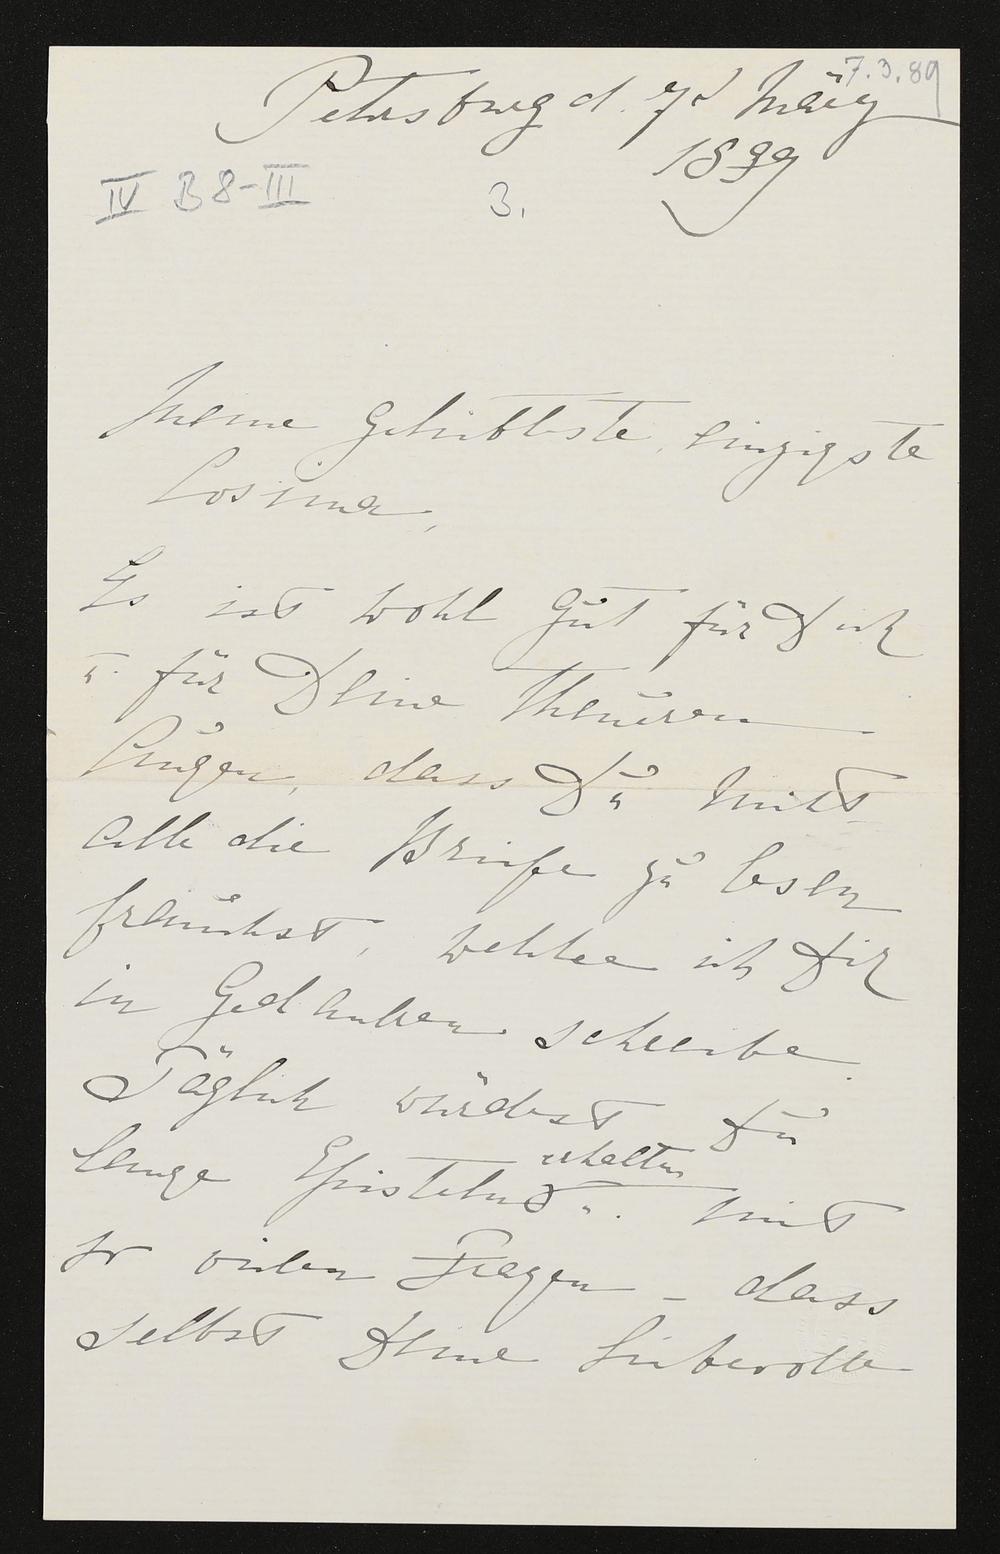 7.3.89
Petersburg d. 7t März
1889
IV B 8-III 3.
Meine geliebteste, einzigste
Cosima,
Es ist wohl gut für Dich
u. für Deine theuren
Augen, dass Du nicht
alle die Briefe zu lesen
brauchst, welche ich Dir
in Gedanken schreibe.
Täglich würdest Du
lange Episteln erhalten u. mit
so vielen Fragen – dass
selbst Deine liebevolle